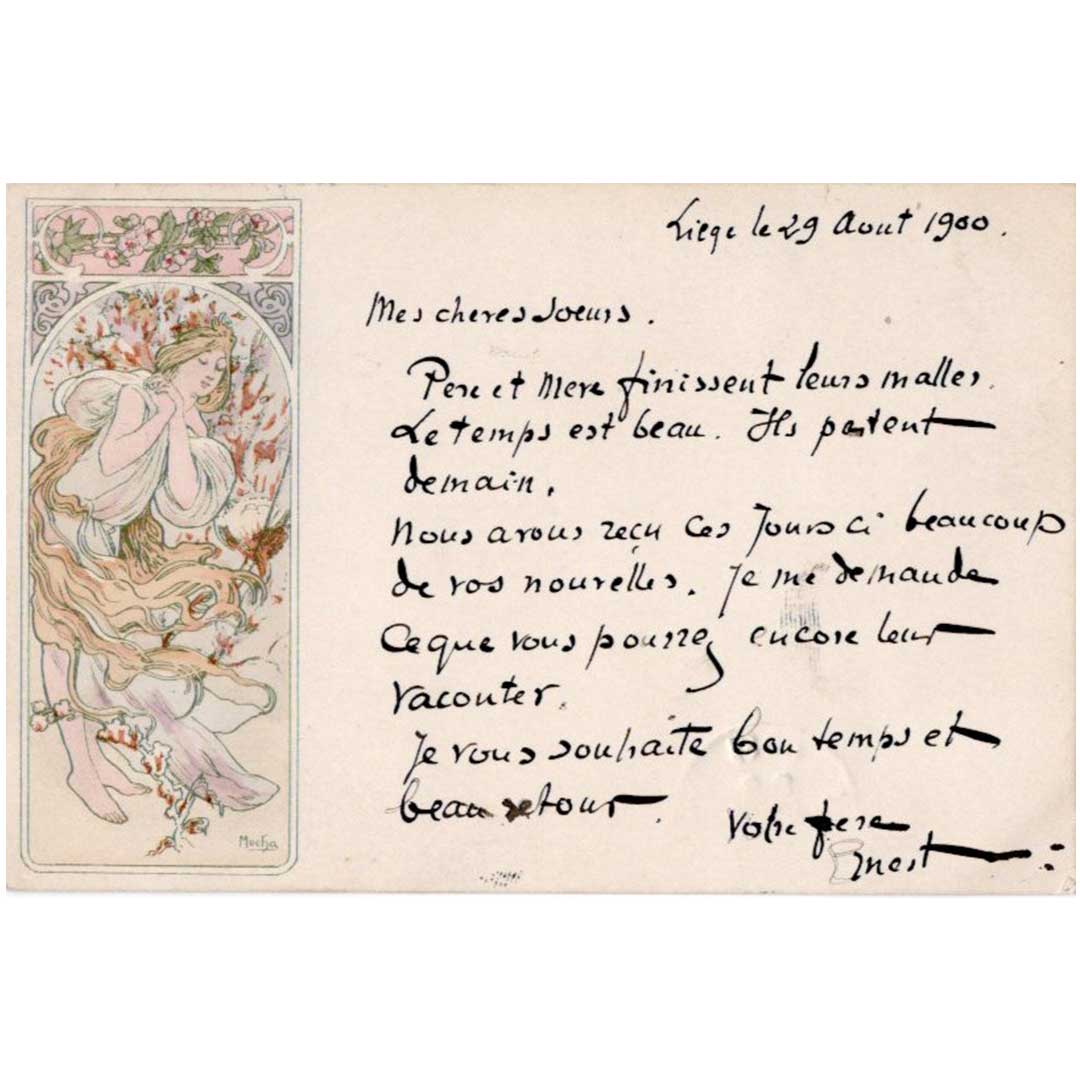 Liège le 29 Aout 1900.
Mes cheres soeurs.
Pere et Mere finissent leurs malles.
Le temps est beau. Ils partent
demain.
Nous avons reçu ces jours ci beaucoup
de vos nouvelles. Je me demande
ce que vous pourrez encore leur
raconter.
Je vous souhaite bon temps et
beau retour.
Votre frere
Ernest
Mucha